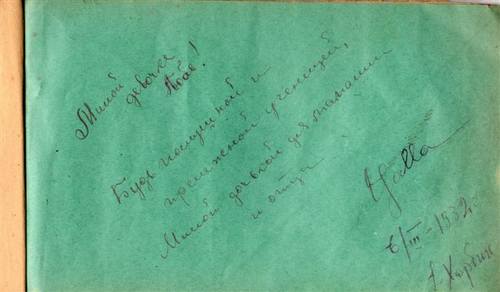 Милой
девочке
Абе!
Будь послушной и
прилежной ученицей,
Милой дочкой для мамаши
и отца
6/III-1932.
г. Харбин